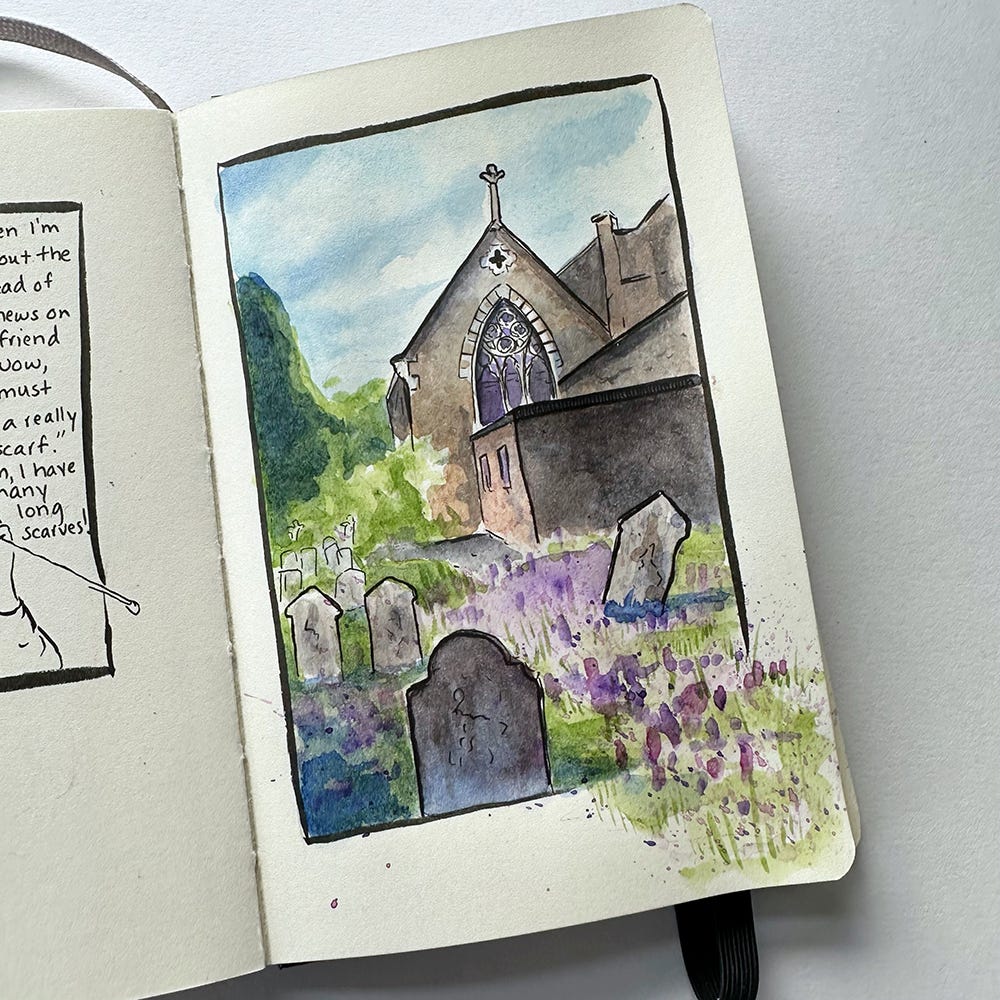 en I'm
out the
ad of
news on
friend
wow,
must
a really
scarf."
n, I have
many
long
scarves!